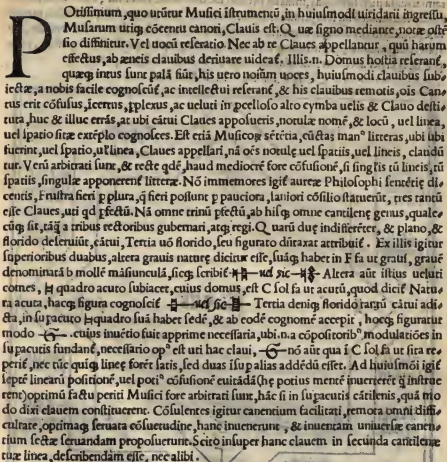 POtissimum, quo utūtur Musici īstrumentū, in huiusmodi uiridarii īngressu,
Musarum utiq; cōcentu canori, Clauis est. Q uæ signo mediante, noræ ostē
sio diffinitur. Vel uocū reseratio. Nec ab re Claues appellantur, quū harum
effectus, ab æneis clauibus deriuare uideat̄. Illis. n. Domus hostia reserant̄,
quæq; intus sunt palā fiūt, his uero noīum uoces, huiusmodi clauibus subi
iectæ, a nobis facile cognoscūt̄, ac intellectui reserant̄, & his clauibus remotis, oīs Can
tus erit cōfusus, īcertus, pplexus, ac ueluti in pcelloso alto cymba uelis & Clauo desti
tura, huc & illuc errās, at ubi cātui Claues apposueris, notulæ nomē, & locū, uel linea,
uel spatio sitæ extēplo cognosces. Est etiā Musicoꝝ sētētia, cūctas manꝰ litteras, ubi ubi
fuerint, uel spatio, ut linea, Claues appellari, nā oēs notulę uel spatiis, uel lineis, claudū
tur. Verū arbitrati sunt, & recte qdē, haud mediocrē fore cōfusionē, si singlis tū lineis, tū
spatiis, singulæ apponerent̄ litteræ. Nō immemores igit̄ aureæ Philosophi sentētię di
centis, Frustra fieri p plura, q̄ fieri possunt p pauciora, saniori cōsilio statuerūt, tres tantū
esse Claues, uti qd pfectū. Nā omne trinū pfectū, ab hisq; omne cantilenę genus, qualec
cūq; sit, tāq̄ a tribus rectoribus gubernari, atq; regi. Q uarū duę indifferēter, & plano, &
florido deseruiūt, cātui, Tertia uō florido, seu figurato dūtaxat attribuit̄. Ex illis igitur
superioribus duabus, altera grauis naturę dicitur esse, suāq; habet in F fa ut graui, grauē
denominatā b mollē māsiunculā, sicq; scribit̄ uel sic Altera aūt istius ueluti
comes, ♮ quadro acuto subiacet, cuius domus, est C sol fa ut acutū, quod dicit̄ Natu
ra acuta, hacq; figura cognoscit̄ uel sic Tertia deniq; florido tantū cātui adi
cta, in supacuto ♮ quadro suā habet sedē, & ab eodē cognomē accepit, hocq; figuratur
modo G. cuius inuētio fuit apprime necessaria, ubi. n. a cōpositoribꝰ modulatiōes in
supacutis fundant̄, necessario opꝰ est uti hac claui, G nō aūt qua ī C sol fa ut sita re
perit̄, nec tūc quīq; lineę forēt satis, sed duas isupalias addēdū esset. Ad huiusmōi igit̄
septē linearū positionē, uel potiꝰ cōfusionē euitādā (hę potius mentē inuerterēt q̄ instrue
rent) oprimū factu periti Musici fore arbitrati sunt, hāc si in supacutis cātilenis, quā mo
do dixi clauem constituerent. Cōsulentes igitur canentium facilitati, remota omni diffi
cultate, optimaq; seruata cōsuetudine, hanc inuenerunt, & inuentam uniuersæ canen
tium sectæ seruandam proposuerunt. Scito insuper hanc clauem in secunda cantilenæ
tuæ linea, describendam esse, nec alibi.